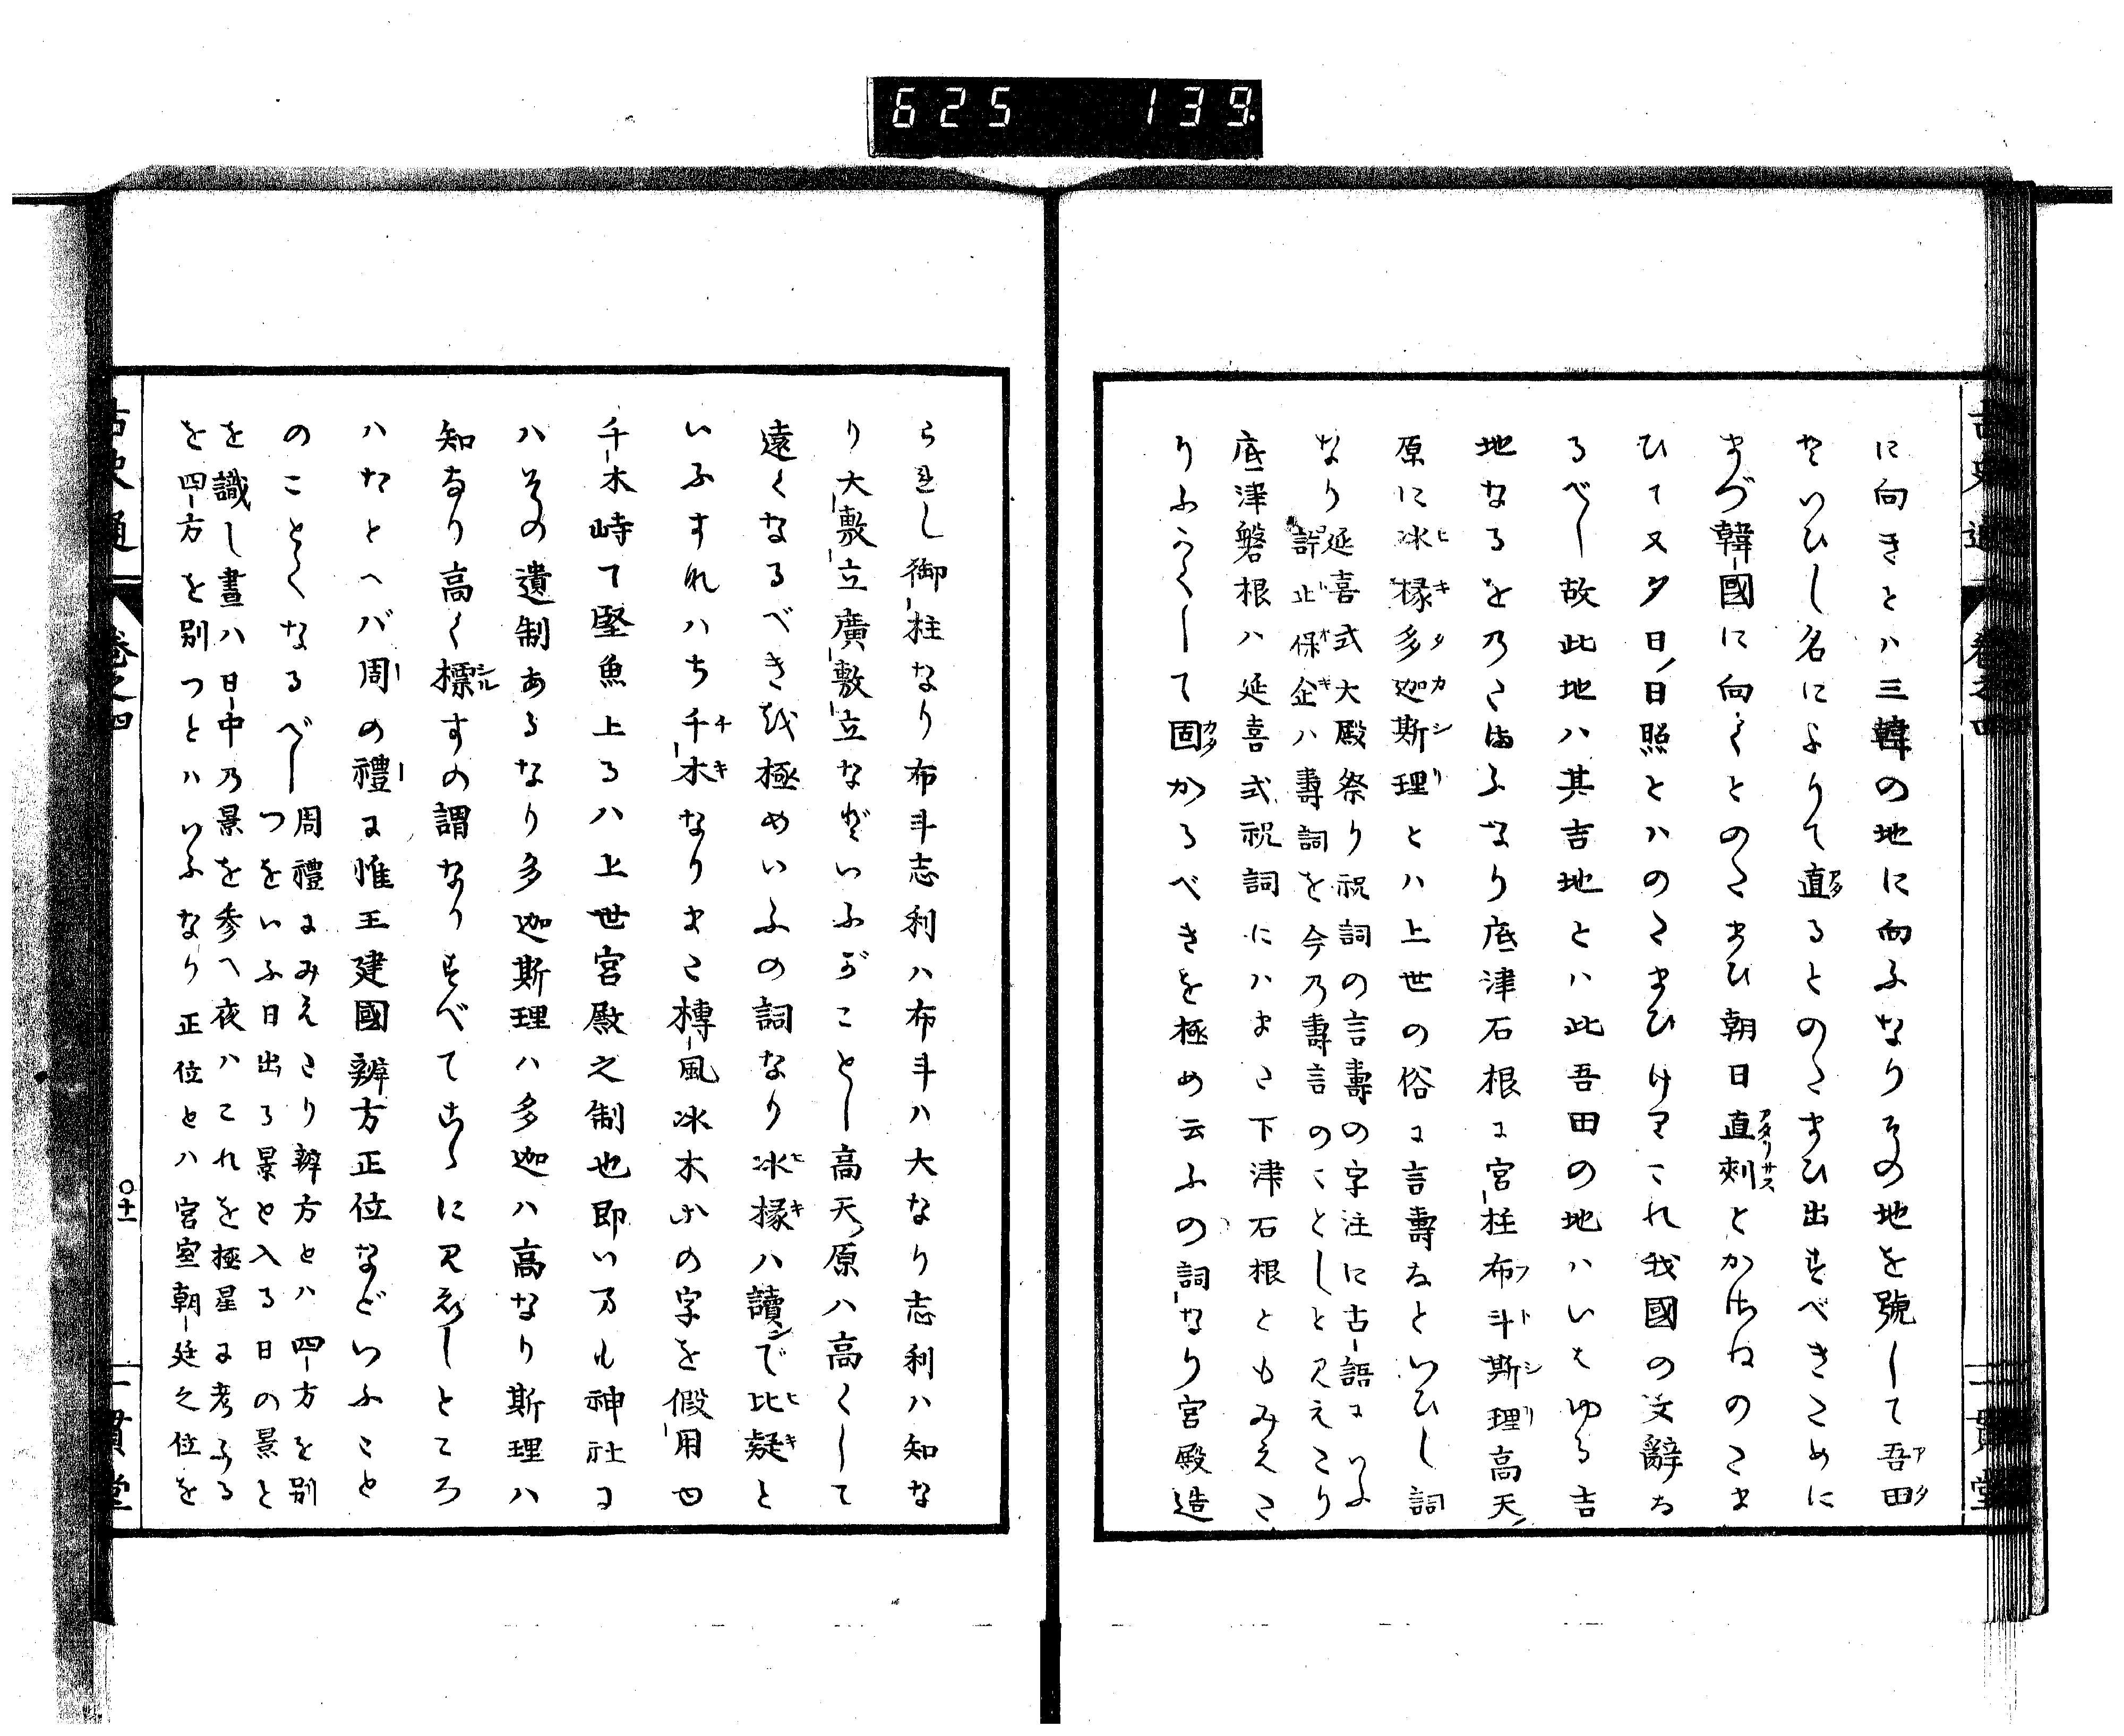 625 139
に向きとハ三韓の地に向ふなりその地を號して吾田
といひし名によりて直るとのたまひ出すべきために
まづ韓國に向くとのたまひ朝日直刺とかさねのたま
ひて又夕日ノ日照とハのたまひけりこれ我國の文辭な
るべし故此地ハ其吉地とハ此吾田の地ハいはゆる吉
地なるをのたまふなり底津石根に宮柱布斗斯理高天ノ
原に冰椽多迦斯理とハ上世の俗に言壽なといひし詞
なり
延喜式大殿祭り祝詞の言壽の字注に古語にいふ
許止保企ハ壽詞を今乃壽言のことしと見えたり
底津磐根ハ延喜式祝詞にハまた下津石根ともみえた
りふかくして固かるべきを極め云ふの詞なり宮殿造
られし御柱なり布斗志利ハ布斗ハ大なり志利ハ知な
り大敷立廣敷立などいふがことし高天ノ原ハ高くして
遠くなるべきを極めいふの詞なり冰椽ハ讀て比疑と
いふすれハち千木なりまた榑風冰木等の字を假用ゆ
千木峙て堅魚上るハ上世宮殿之制也即いまも神社に
ハその遺制あるなり多迦斯理ハ多迦ハ高なり斯理ハ
知なり高く標すの謂なりすべてこゝに見えしところ
ハたとへバ周の禮に惟王建國辨方正位などいふこと
のことくなるべし
周禮にみえたり辨方とハ四方を別
つをいふ日出る景と入る日の景と
を識し晝ハ日中乃景を參へ夜ハこれを極星に考ふる
を四方を別つとハいふなり正位とハ宮室朝廷之位を
古史通
卷之四
〇十一
一貫堂